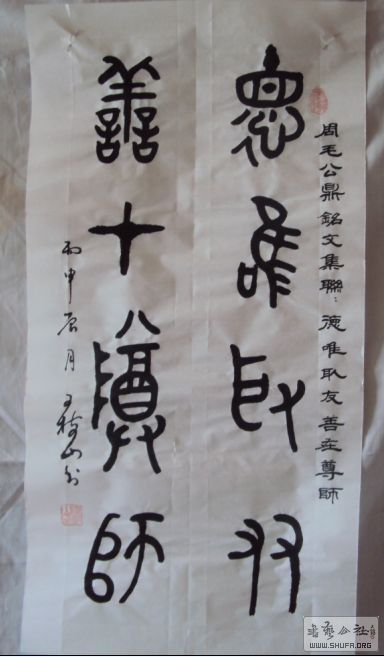 周毛公鼎銘文集聯:德唯取友善在尊師
德唯取友
善在尊師
丙申辰月
书艺公社
WWW.SHUFA.ORG